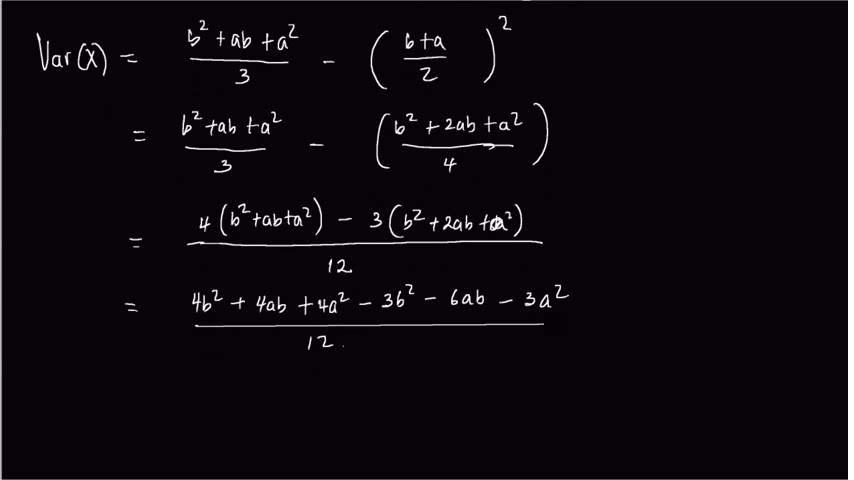 Var(X) = \frac{b^2 + ab + a^2}{3} - \left( \frac{b+a}{2} \right)^2
= \frac{b^2 + ab + a^2}{3} - \left( \frac{b^2 + 2ab + a^2}{4} \right)
= \frac{4(b^2 + ab + a^2) - 3(b^2 + 2ab + a^2)}{12}
= \frac{4b^2 + 4ab + 4a^2 - 3b^2 - 6ab - 3a^2}{12}